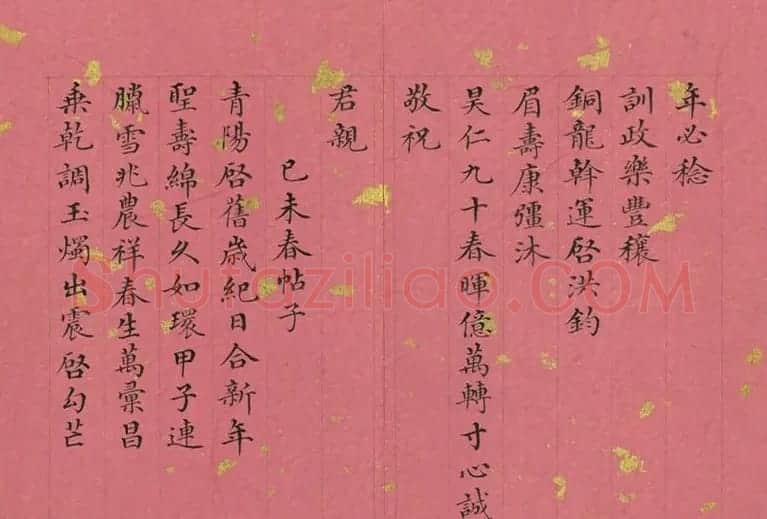 年必稔
訓政樂豐穰
銅龍斡運啓洪鈞
眉壽康彊沐
昊仁九十春暉億萬轉寸心誠
敬祝
君親
己未春帖子
青陽啓舊歲紀日合新年
聖壽綿長久如環甲子連
臘雪兆農祥春生萬彙昌
乘乾調玉燭出震啓勾芒
Shufaziliao.COM